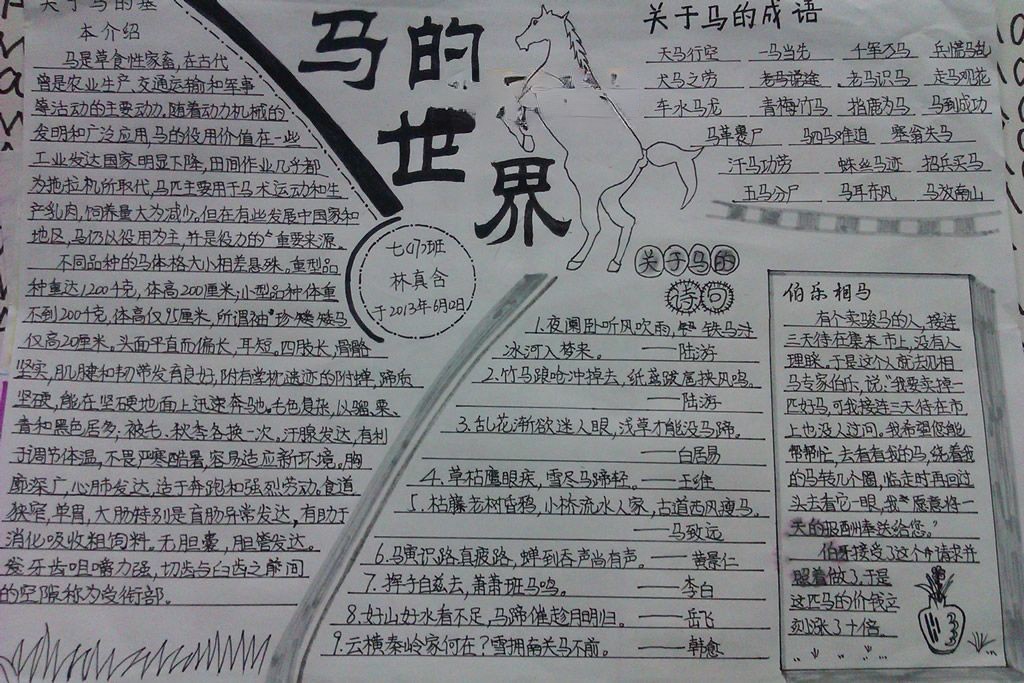 关于马的基
本介绍
马是草食性家畜,在古代
曾是农业生产、交通运输和军事
等活动的主要动力。随着动力机械的
发明和广泛应用,马的役用价值在一些
工业发达国家明显下降,田间作业几乎都
为拖拉机所取代,马匹主要用于马术运动和生
产乳肉,饲养量大为减少。但在有些发展中国家和
地区,马仍以役用为主,并是役力的重要来源。
不同品种的马体格大小相差悬殊。重型品
种重达1200千克,体高200厘米;小型品种体重
不到200千克,体高仅95厘米,所谓袖珍矮马
仅高20厘米。头面平直而偏长,耳短。四肢长,骨骼
坚实,肌腱和韧带发育良好,附有掌枕遗迹的附蝉,蹄质
坚硬,能在坚硬地面上迅速奔驰。毛色复杂,以骝、栗、
青和黑色居多;被毛、秋季各换一次。汗腺发达,有利
于调节体温,不畏严寒酷暑,容易适应新环境。胸
廓深广,心肺发达,适于奔跑和强烈劳动。食道
狭窄,单胃,大肠特别是盲肠异常发达,有助于
消化吸收粗饲料。无胆囊,胆管发达。
牙齿咀嚼力强,切齿与臼齿之间
的空隙称为受衔部。
马的
世
界
七(7)班
林真含
于2013年6月0日
关于马的成语
天马行空 一马当先 千军万马 兵慌马乱
犬马之劳 老马识途 老马识马 走马观花
车水马龙 青梅竹马 指鹿为马 马到成功
马革裹尸 驷马难追 塞翁失马
汗马功劳 蛛丝马迹 招兵买马
五马分尸 马耳东风 马放南山
关于马的
诗句
1.夜阑卧听风吹雨,铁马
冰河入梦来。——陆游
2.竹马踉呛冲掉去,纸鸢跋扈挟风鸣。
——陆游
3.乱花渐欲迷人眼,浅草才能没马蹄。
——白居易
4.草枯鹰眼疾,雪尽马蹄轻。——王维
5.枯藤老树昏鸦,小桥流水人家,古道西风瘦马。
——马致远
6.马寅识路真疲路,蝉到吞声尚有声。——黄景仁
7.挥手自兹去,萧萧班马鸣。——李白
8.好山好水看不足,马蹄催趁月明归。——岳飞
9.云横秦岭家何在?雪拥南关马不前。——韩愈
伯乐相马
有个卖骏马的人,接连
三天待在集市上,没有人
理睬。于是这个人就去见相
马专家伯乐,说:"我要卖掉一
匹好马,可我接连三天待在市
上也没人过问。我希望您能
帮帮忙,去看看我的马,绕着我
的马转几个圈,临走时再回过
头去看它一眼,我愿意将一
天的报酬奉送给您。"
伯乐接受了这个请求并
照着做了,于是
这匹马的价钱立
刻涨了十倍。